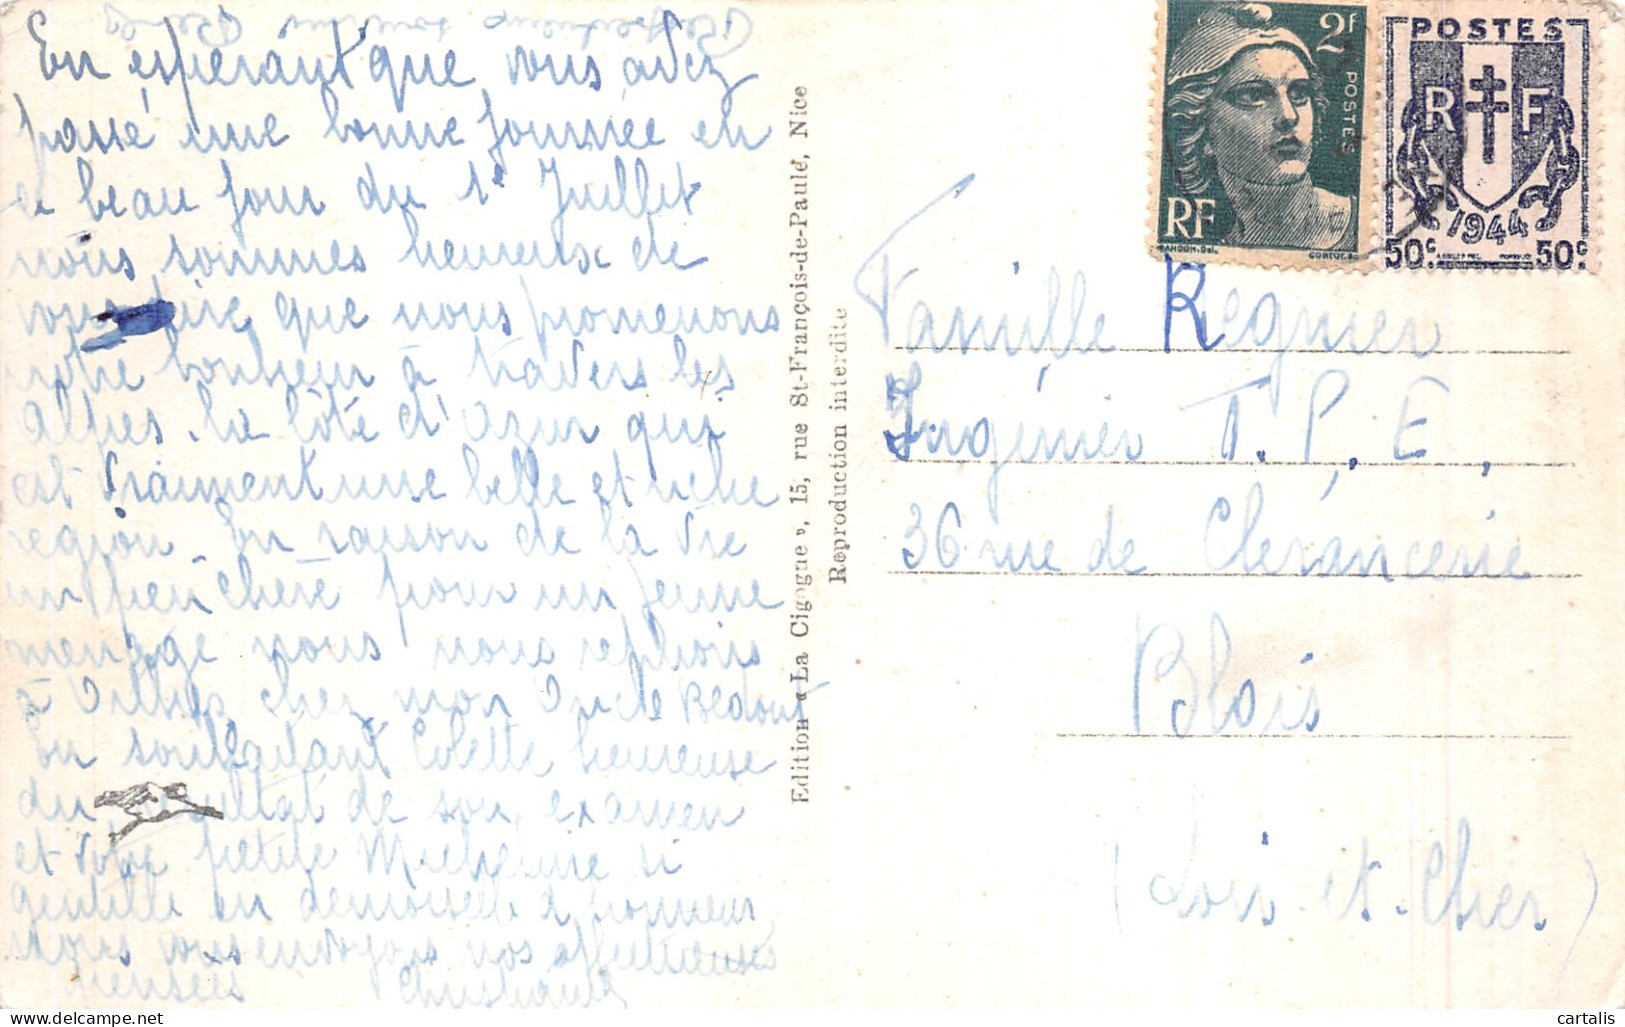 En espérant que vous avez
passé une bonne journée en
ce beau jour du 1e Juillet
nous sommes heureux de
vous dire que nous promenons
notre bonheur à travers les
Alpes. la Côte d'Azur qui
est vraiment une belle et riche
region. En raison de la vie
un peu chere pour un jeune
menage nous nous replions
à chez mon Oncle Bedout
En souhaitant Colette heureuse
du resultat de son examen
et votre petite Micheline si
gentille en demoiselle d'honneur
Nous vous envoyons nos affectueuses
pensées Christiane
Edition « La Cigogne », 15, rue St-François-de-Paule, Nice
Reproduction interdite
2f
POSTES
RF
GANDON.Del.
CORTOT.Sc
POSTES
R F
1944
50c 50c
Famille Regnier
Ingénier T.P.E,
36 rue de Cheràncerie
Blois
(Loir et Cher)
cartalis
www.delcampe.net